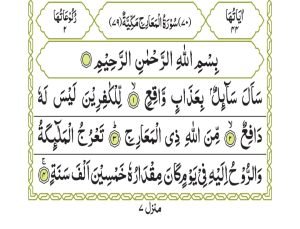 اٰيَاتُهَا ٤٤
(٧٠) سُوْرَةُ الْمَعَارِجِ مَكِّيَّةٌ (٧٩)
رُكُوْعَاتُهَا ٢
بِسْمِ اللّٰهِ الرَّحْمٰنِ الرَّحِيْمِ
سَاَلَ سَآئِلٌۢ بِعَذَابٍ وَّاقِعٍ ۙ﴿١﴾ لِّلْكٰفِرِيْنَ لَيْسَ لَهٗ
دَافِعٌ ۙ﴿٢﴾ مِّنَ اللّٰهِ ذِي الْمَعَارِجِ ؕ﴿٣﴾ تَعْرُجُ الْمَلٰٓئِكَةُ
وَالرُّوْحُ اِلَيْهِ فِيْ يَوْمٍ كَانَ مِقْدَارُهٗ خَمْسِيْنَ اَلْفَ سَنَةٍ ۚ﴿٤﴾
منزل ٧